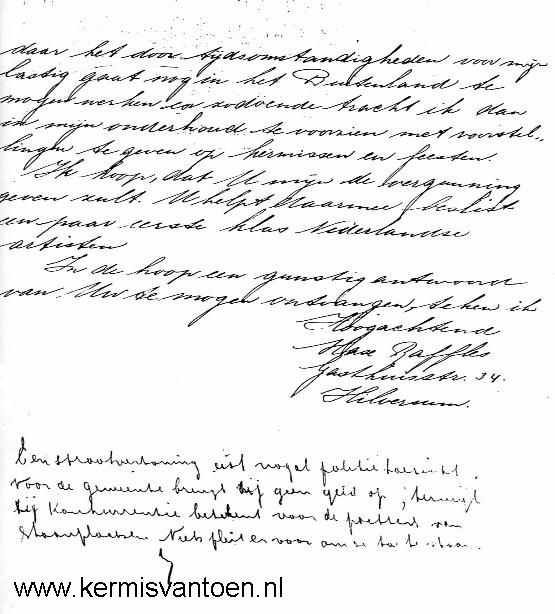 daar het door tijdsomstandigheden voor mij
lastig gaat nog in het Buitenland te
mogen werken en zodoende tracht ik dan
in mijn onderhoud te voorzien met voorstel-
lingen te geven op kermissen en feesten.
Ik hoop, dat U mijn de vergunning
geven zult. U helpt daarmee beslist
een paar eerste klas Nederlandse
artisten
In de hoop een gunstig antwoord
van Uw te mogen ontvangen, teken ik
Hoogachtend
Max Raffles
Gasthuisstr. 34.
Hilversum.
Een straatvertoning eist nogal politietoezicht.
Voor de gemeente brengt zij geen geld op, terwijl
zij konkurrentie betekent voor de pachters van
staanplaatsen. Niets pleit er voor om ze toe te staan.
www.kermisvantoen.nl